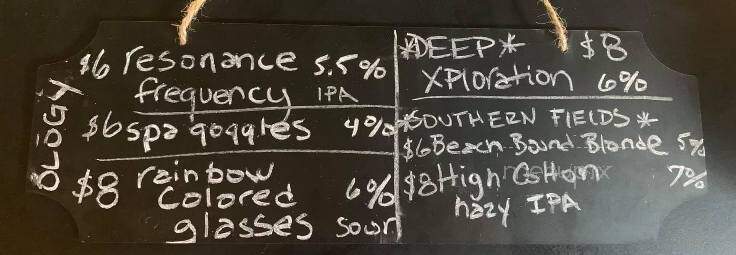 ŌLŌGY
$6 resonance 5.5%
frequency IPA
$6 spa goggles 4%
$8 rainbow
Colored 6%
glasses sour
*DEEP* $8
XPloration 6%
*SOUTHERN FIELDS*
$6 Beach Bound Blonde 5%
$8 High Cotton 7%
hazy IPA